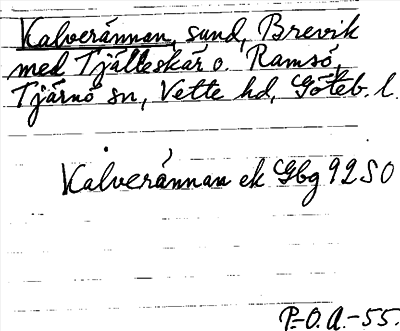 Kalverännan, sund, Brevik
med Tjälleskär o. Ramsö,
Tjärnö sn, Vette hd, Göteb. l.
Kalverännan ek Gbg 92 SO
P.-O. A. -55.